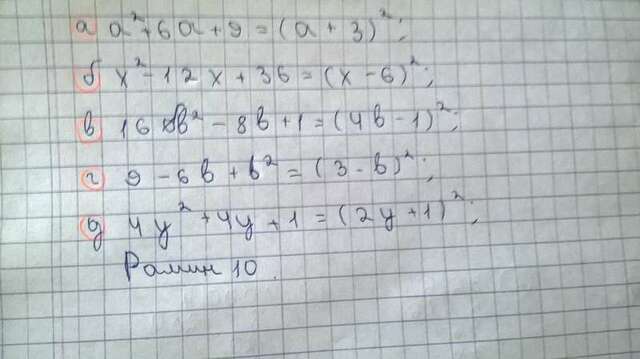 а a²+6a+9=(a+3)²;
б x²-12x+36=(x-6)²;
в 16b²-8b+1=(4b-1)²;
г 9-6b+b²=(3-b)²;
д 4y²+4y+1=(2y+1)²;
Рамин 10.